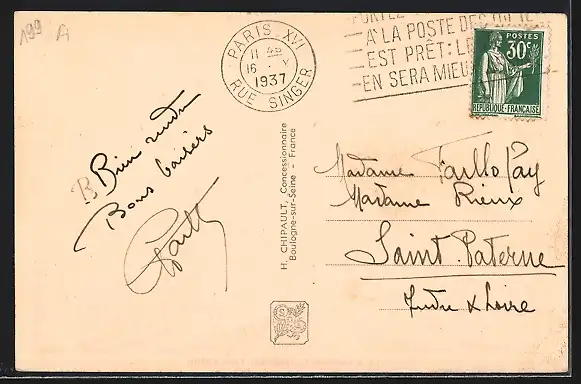 199 A
PARIS XVI
11 45
16 V
1937
RUE SINGER
A LA POSTE DES
EST PRÊT:
EN SERA MIEU
POSTES
30c
REPUBLIQUE-FRANÇAISE
Bien
Bons baisers
H. CHIPAULT, Concessionnaire
Boulogne-sur-Seine - France
Madame
Madame Rieux
Saint Paterne
Indre & Loire